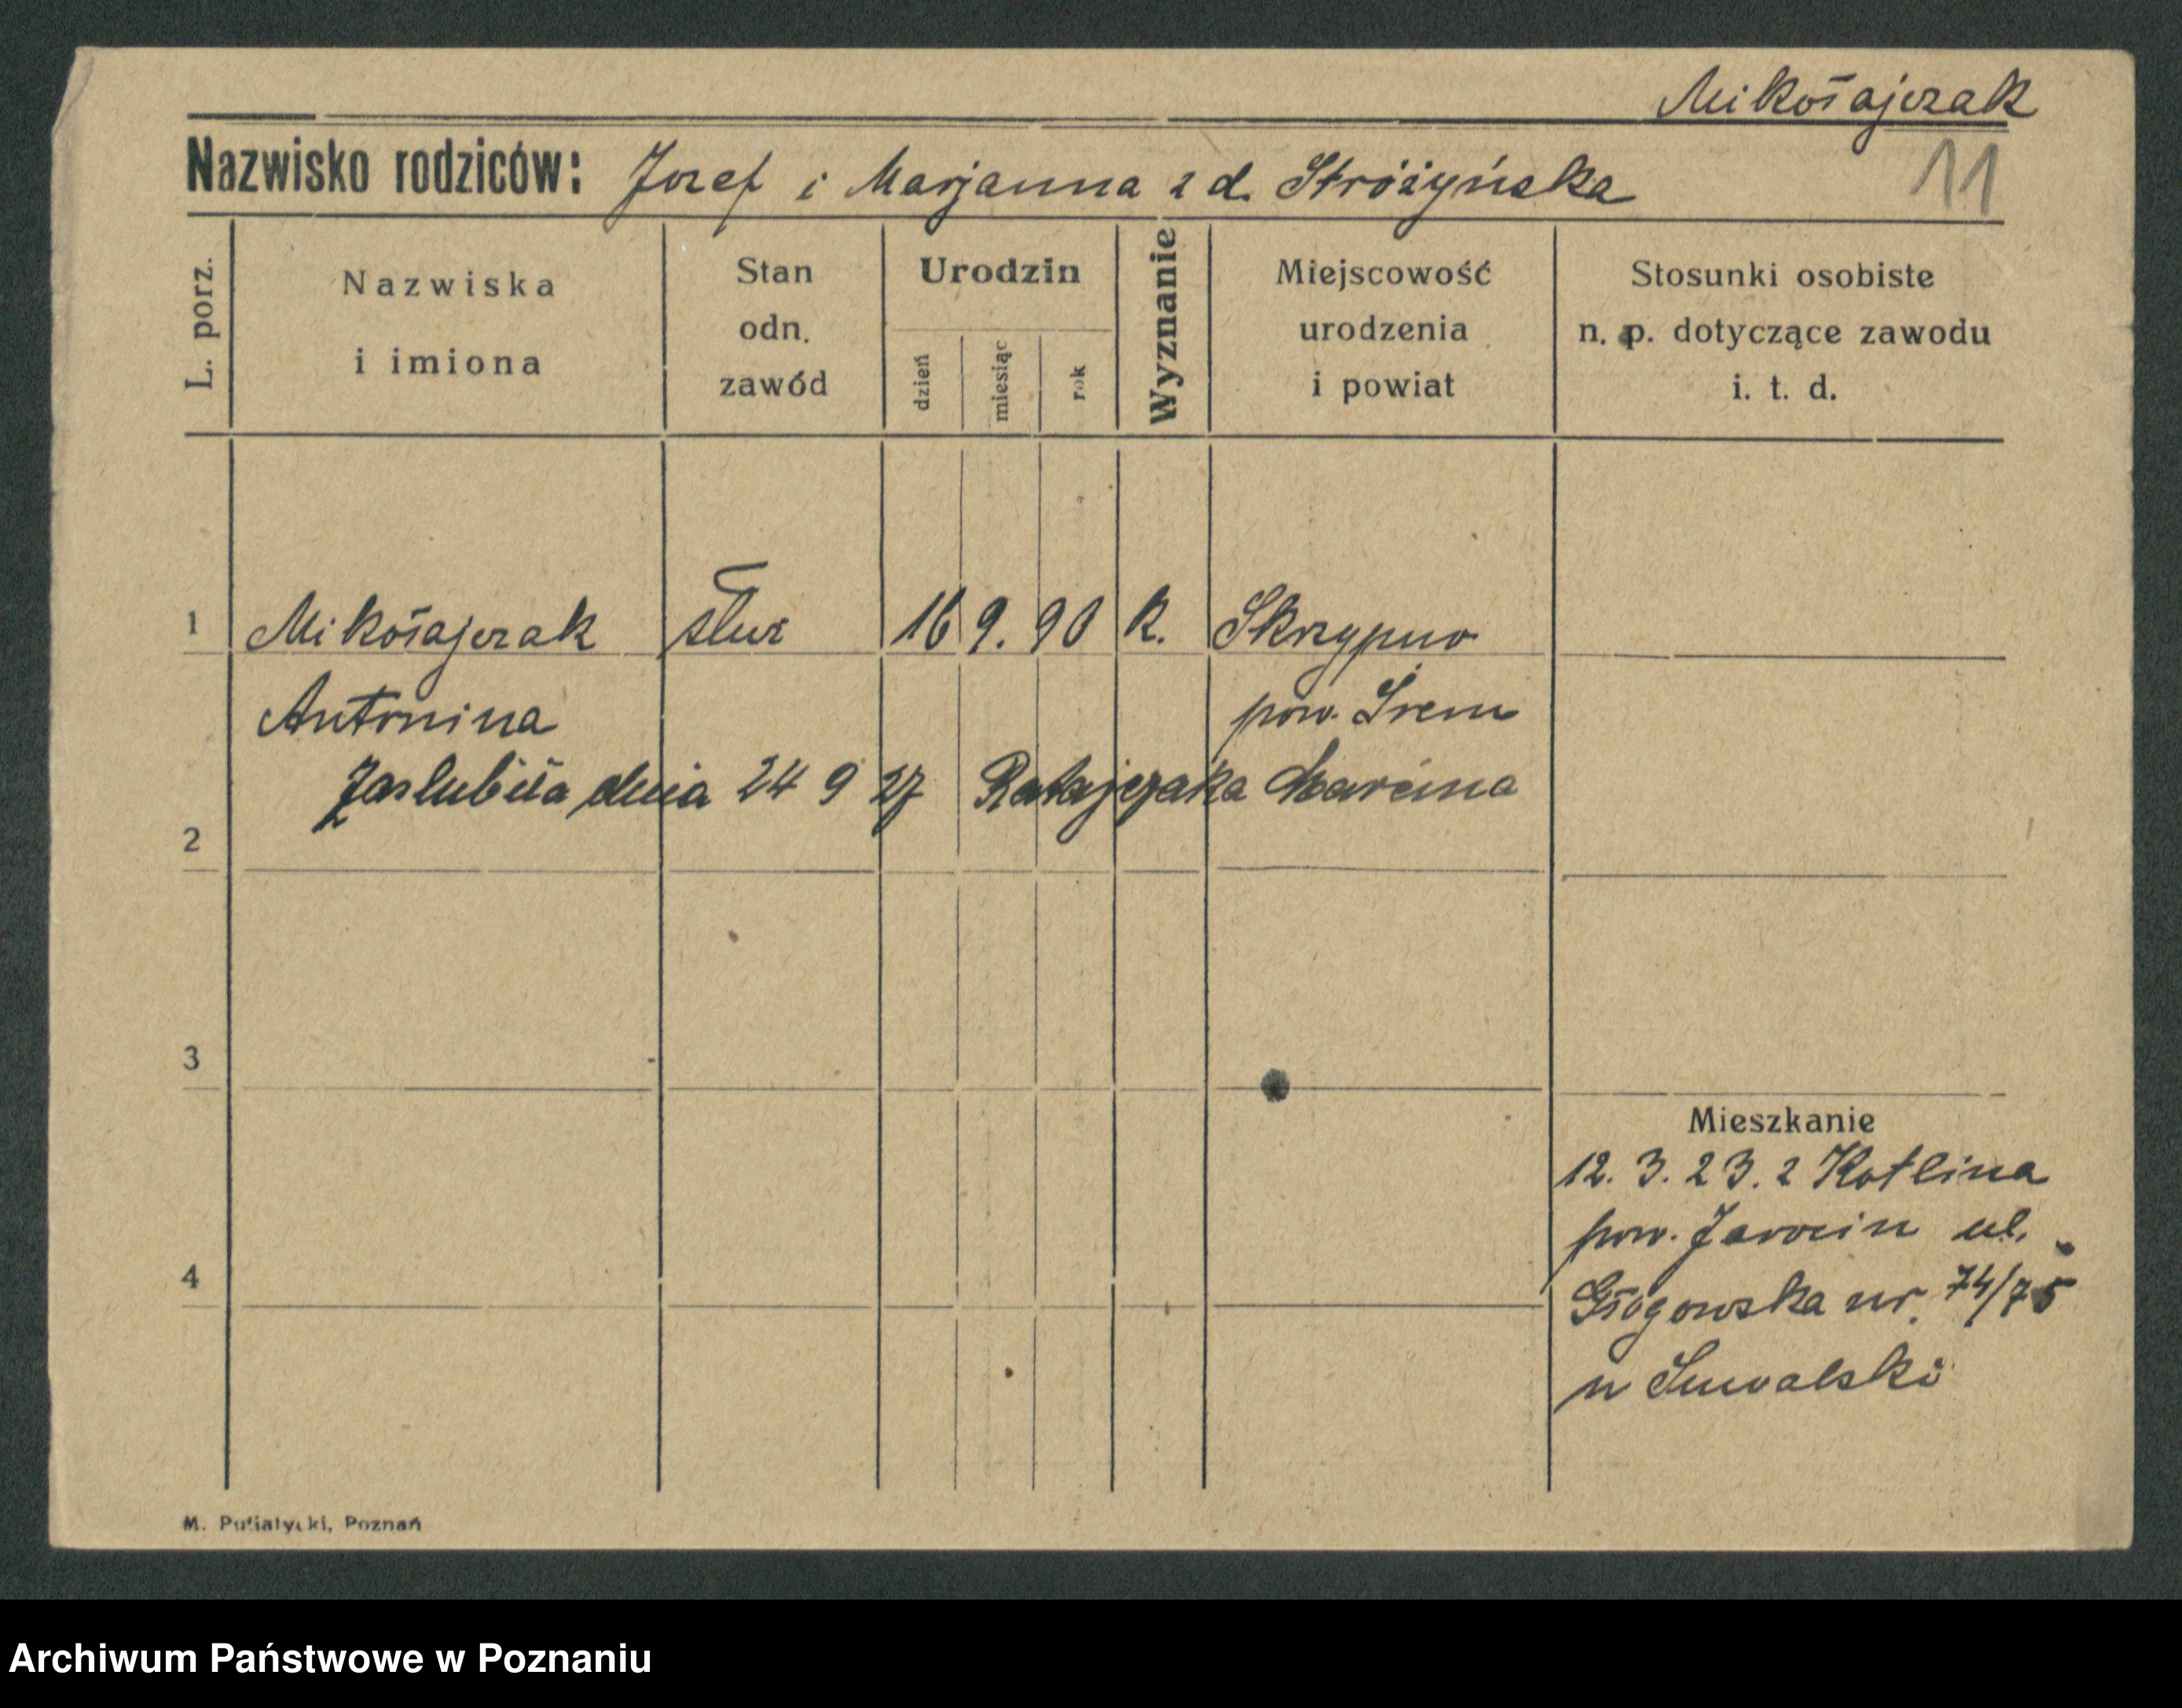 Mikołajczak
Nazwisko rodziców: Jozef i Marjanna z d. Stróżyńska
11
L. porz.
Nazwiska
i imiona
Stan
odn.
zawód
Urodzin
dzień
miesiąc
rok
Wyznanie
Miejscowość
urodzenia
i powiat
Stosunki osobiste
n. p. dotyczące zawodu
i. t. d.
1 Mikołajczak służ 16 9. 90 k. Skrzypno
Antonina pow. Śrem
Zaslubiła dnia 24 9 27 Ratajczaka Marcina
2
3
Mieszkanie
12. 3. 23. z Kotlina
pow. Jarocin ul.
4
Głogowska nr. 74/75
u Suwalski
M. Putiatycki, Poznań
Archiwum Państwowe w Poznaniu